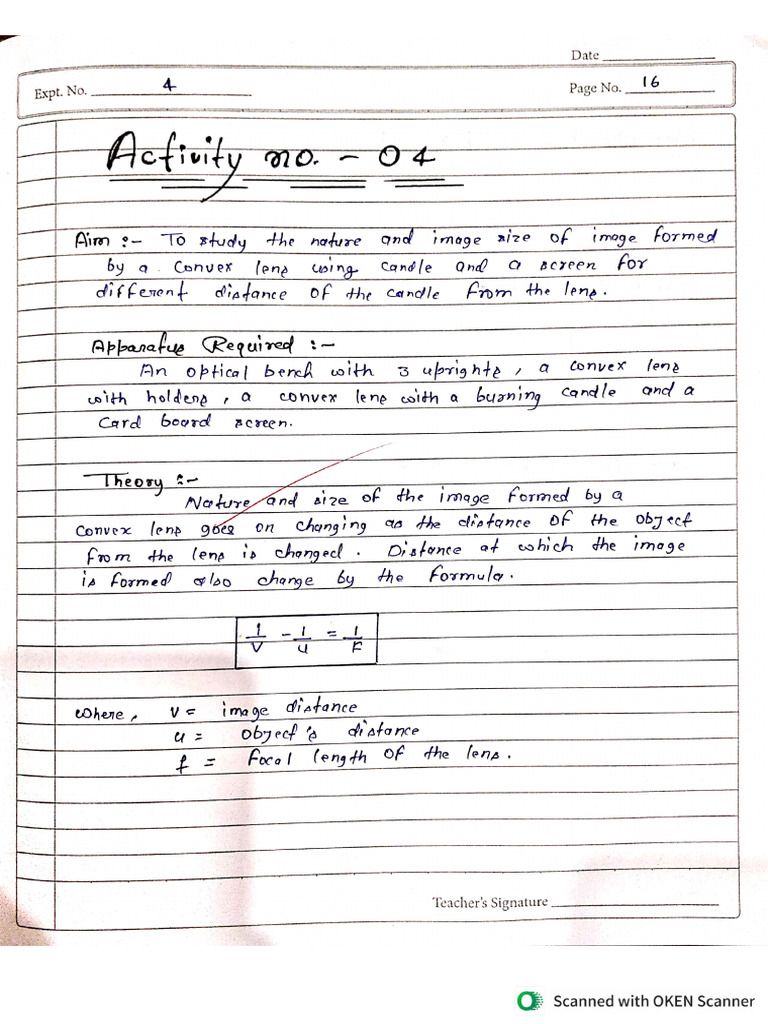 Date
Expt. No. 4
Page No. 16
Activity no. - 04
Aim :- To study the nature and image size of image formed
by a convex lens using candle and a screen for
different distance of the candle from the lens.
Apparatus Required :-
An optical bench with 3 uprights, a convex lens
with holders, a convex lens with a burning candle and a
Card board screen.
Theory :-
Nature and size of the image formed by a
convex lens goes on changing as the distance of the object
from the lens is changed. Distance at which the image
is formed also change by the formula.
1/V - 1/u = 1/F
where, v = image distance
u = object's distance
f = focal length of the lens.
Teacher's Signature
Scanned with OKEN Scanner